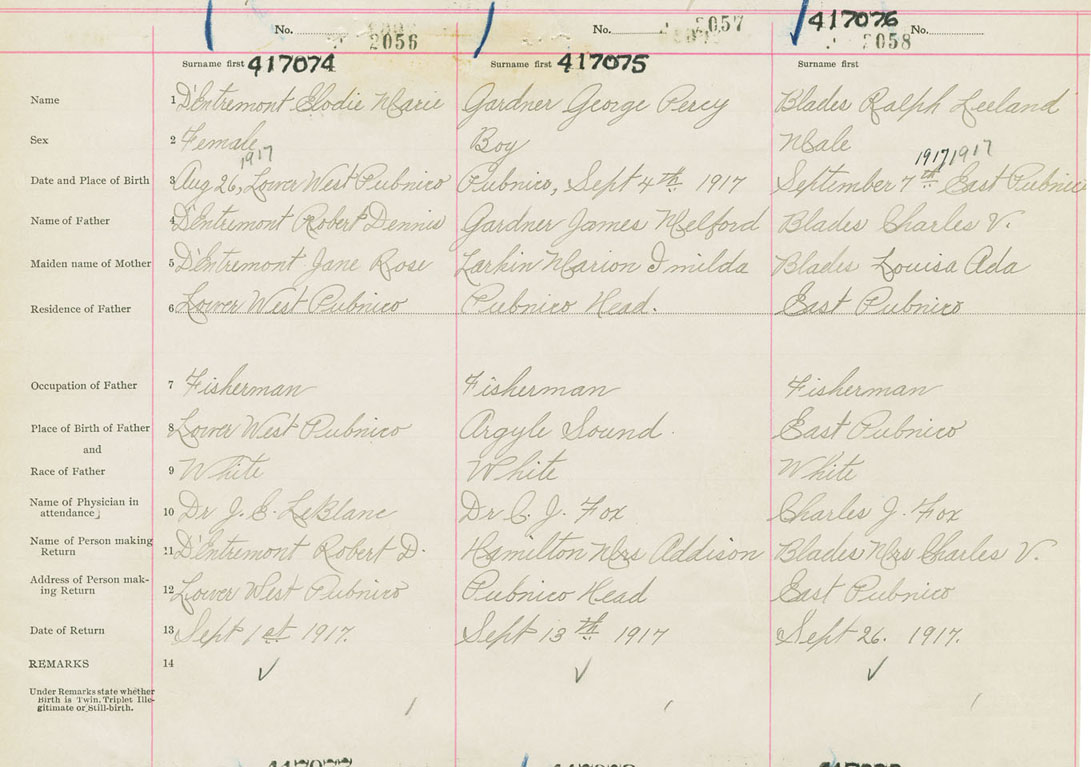 No. 2056
No. 2057
417076
2058 No.
Surname first 417074
Surname first 417075
Surname first
Name 1 D'Entremont Elodie Marie Gardner George Percy Blades Ralph Leeland
Sex 2 Female Boy Male
1917 1917 1917
Date and Place of Birth 3 Aug 26, Lower West Pubnico Pubnico, Sept 4th 1917 September 7th East Pubnico
Name of Father 4 D'Entremont Robert Dennis Gardner James Melford Blades Charles V.
Maiden name of Mother 5 D'Entremont Jane Rose Larkin Marion Imilda Blades Louisa Ada
Residence of Father 6 Lower West Pubnico Pubnico Head. East Pubnico
Occupation of Father 7 Fisherman Fisherman Fisherman
Place of Birth of Father 8 Lower West Pubnico Argyle Sound East Pubnico
and
Race of Father 9 White White White
Name of Physician in
attendance 10 Dr J. E. LeBlanc Dr C. J. Fox Charles J. Fox
Name of Person making
Return 11 D'Entremont Robert D. Hamilton Mrs Addison Blades Mrs Charles V.
Address of Person mak-
ing Return 12 Lower West Pubnico Pubnico Head East Pubnico
Date of Return 13 Sept 1st 1917. Sept 13th 1917 Sept 26. 1917.
REMARKS 14 ✓ ✓ ✓
Under Remarks state whether
Birth is Twin, Triplet Ille-
gitimate or Still-birth.